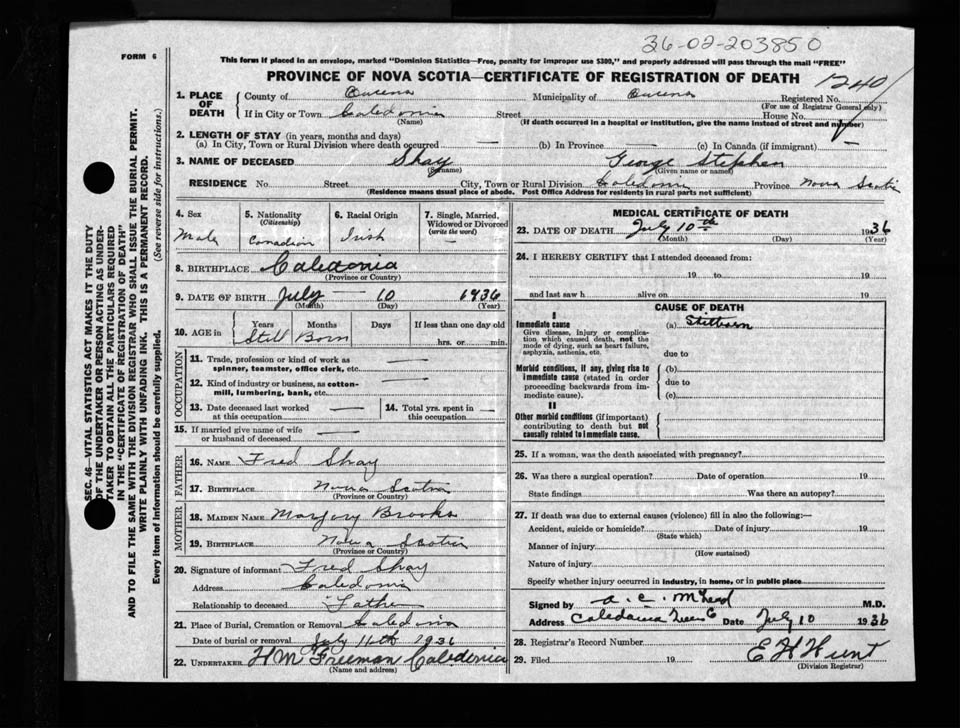 36-02-203850
FORM 6
This form if placed in an envelope, marked "Dominion Statistics—Free, penalty for improper use $300," and properly addressed will pass through the mail "FREE"
PROVINCE OF NOVA SCOTIA—CERTIFICATE OF REGISTRATION OF DEATH
1240
1. PLACE OF DEATH County of Queens Municipality of Queens Registered No.
(For use of Registrar General only)
If in City or Town Caledonia Street House No.
(Name) (If death occurred in a hospital or institution, give the name instead of street and number)
2. LENGTH OF STAY (in years, months and days)
(a) In City, Town or Rural Division where death occurred — (b) In Province — (c) In Canada (if immigrant) —
3. NAME OF DECEASED Shay George Stephen
(Surname) (Given name or names)
RESIDENCE No. Street City, Town or Rural Division Caledonia Province Nova Scotia
(Residence means usual place of abode. Post Office Address for residents in rural parts not sufficient)
SEC. 46—VITAL STATISTICS ACT MAKES IT THE DUTY
OF THE UNDERTAKER OR PERSON ACTING AS UNDER-
TAKER TO OBTAIN ALL THE PARTICULARS REQUIRED
IN THE "CERTIFICATE OF REGISTRATION OF DEATH"
AND TO FILE THE SAME WITH THE DIVISION REGISTRAR WHO SHALL ISSUE THE BURIAL PERMIT.
WRITE PLAINLY WITH UNFADING INK. THIS IS A PERMANENT RECORD.
Every item of information should be carefully supplied. (See reverse side for instructions.)
4. Sex 5. Nationality 6. Racial Origin 7. Single, Married,
(Citizenship) Widowed or Divorced
(write the word)
Male Canadian Irish —
8. BIRTHPLACE Caledonia
(Province or Country)
9. DATE OF BIRTH July 10 1936
(Month) (Day) (Year)
10. AGE in Years Months Days If less than one day old
Still Born hrs. or min.
OCCUPATION
11. Trade, profession or kind of work as —
spinner, teamster, office clerk, etc.
12. Kind of industry or business, as cotton- —
mill, lumbering, bank, etc.
13. Date deceased last worked — 14. Total yrs. spent in —
at this occupation this occupation
15. If married give name of wife —
or husband of deceased
FATHER
16. NAME Fred Shay
17. BIRTHPLACE Nova Scotia
(Province or Country)
MOTHER
18. MAIDEN NAME Marjory Brooks
19. BIRTHPLACE Nova Scotia
(Province or Country)
20. Signature of informant Fred Shay
Address Caledonia
Relationship to deceased Father
21. Place of Burial, Cremation or Removal Caledonia
Date of burial or removal July 11th 1936
22. UNDERTAKER H M Freeman Caledonia
(Name and address)
MEDICAL CERTIFICATE OF DEATH
23. DATE OF DEATH July 10th 1936
(Month) (Day) (Year)
24. I HEREBY CERTIFY that I attended deceased from:
19 to 19
and last saw h alive on 19
CAUSE OF DEATH
I
Immediate cause (a) Stillborn
Give disease, injury or complica-
tion which caused death, not the
mode of dying, such as heart failure,
asphyxia, asthenia, etc. due to
Morbid conditions, if any, giving rise to (b)
immediate cause (stated in order due to
proceeding backwards from im-
mediate cause). (c)
II
Other morbid conditions (if important)
contributing to death but not
causally related to immediate cause.
25. If a woman, was the death associated with pregnancy?
26. Was there a surgical operation? Date of operation 19
State findings Was there an autopsy?
27. If death was due to external causes (violence) fill in also the following:—
Accident, suicide or homicide? Date of injury 19
(State which)
Manner of injury
(How sustained)
Nature of injury
Specify whether injury occurred in industry, in home, or in public place
Signed by A. C. M.D.
Address Caledonia Date July 10 1936
28. Registrar's Record Number
29. Filed 19 E H Hunt
(Division Registrar)